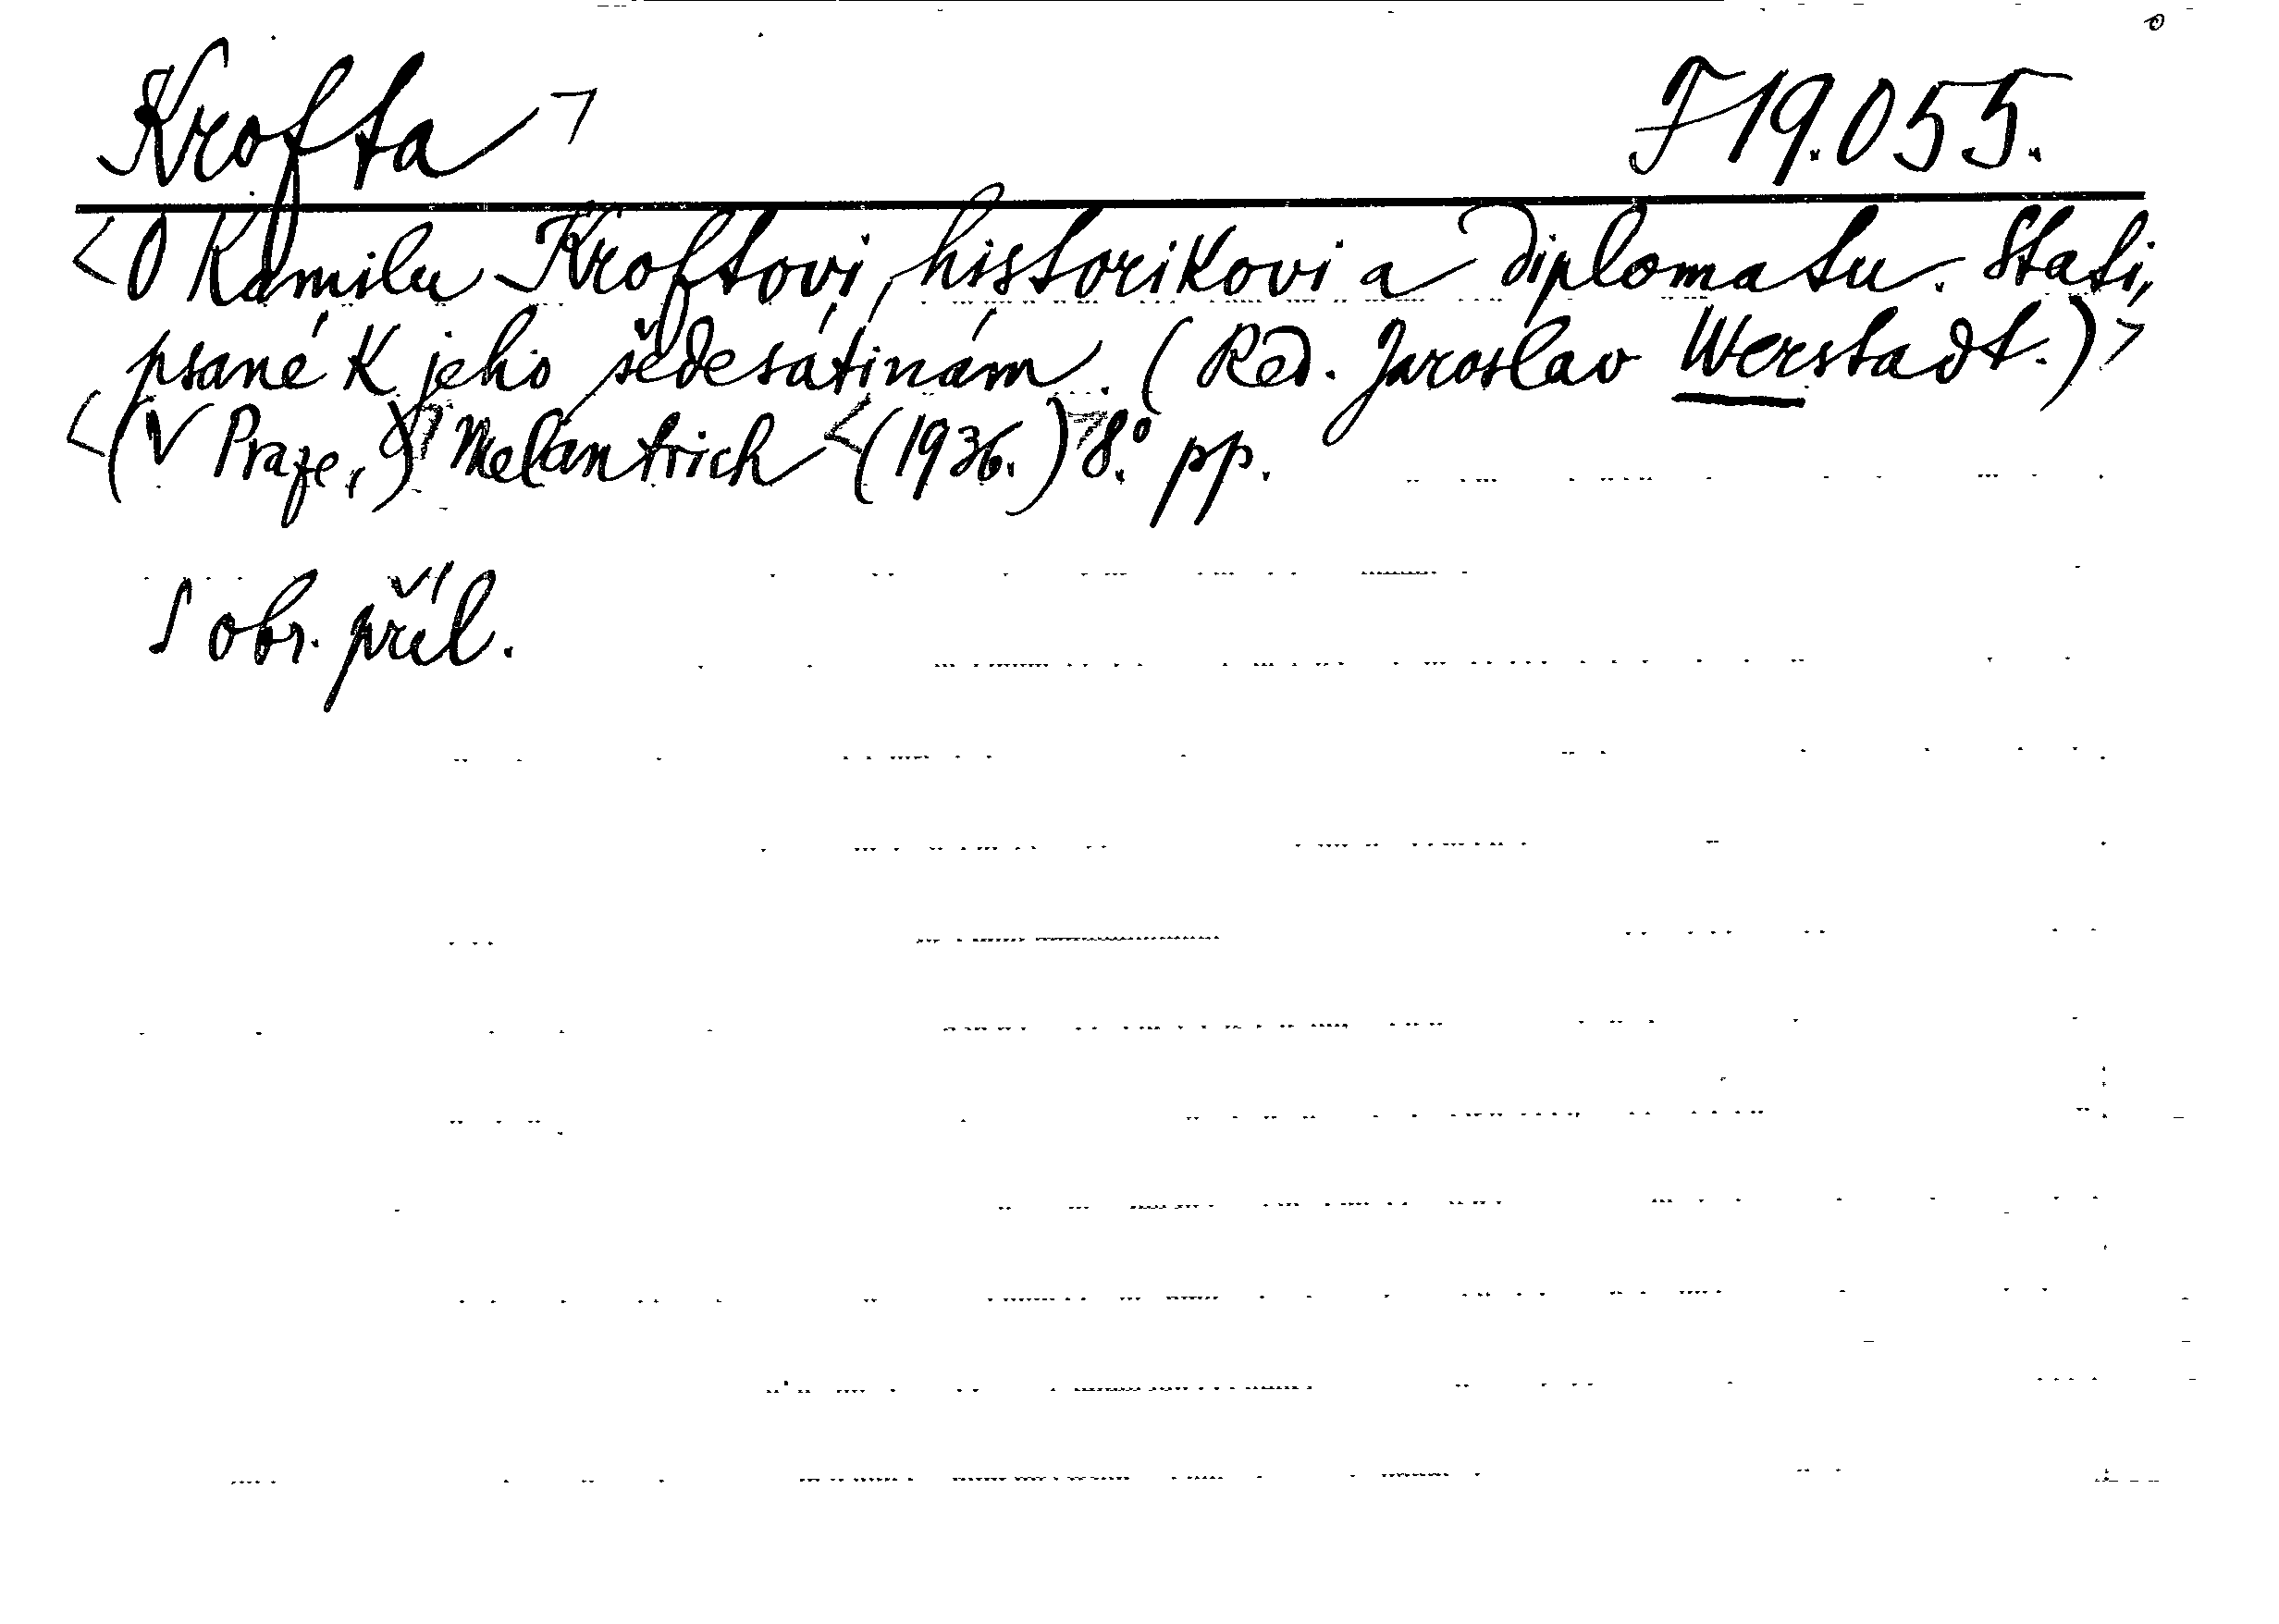 Krofta ¬ F 19.055.
<O Kamilu Kroftovi, historikovi a diplomatu. Stati,
psané k jeho šedesátinám. (Red. Jaroslav Werstadt.)>
<(V Praze,)> Melantrich <(1936.)> 8.° pp.
S obr. příl.